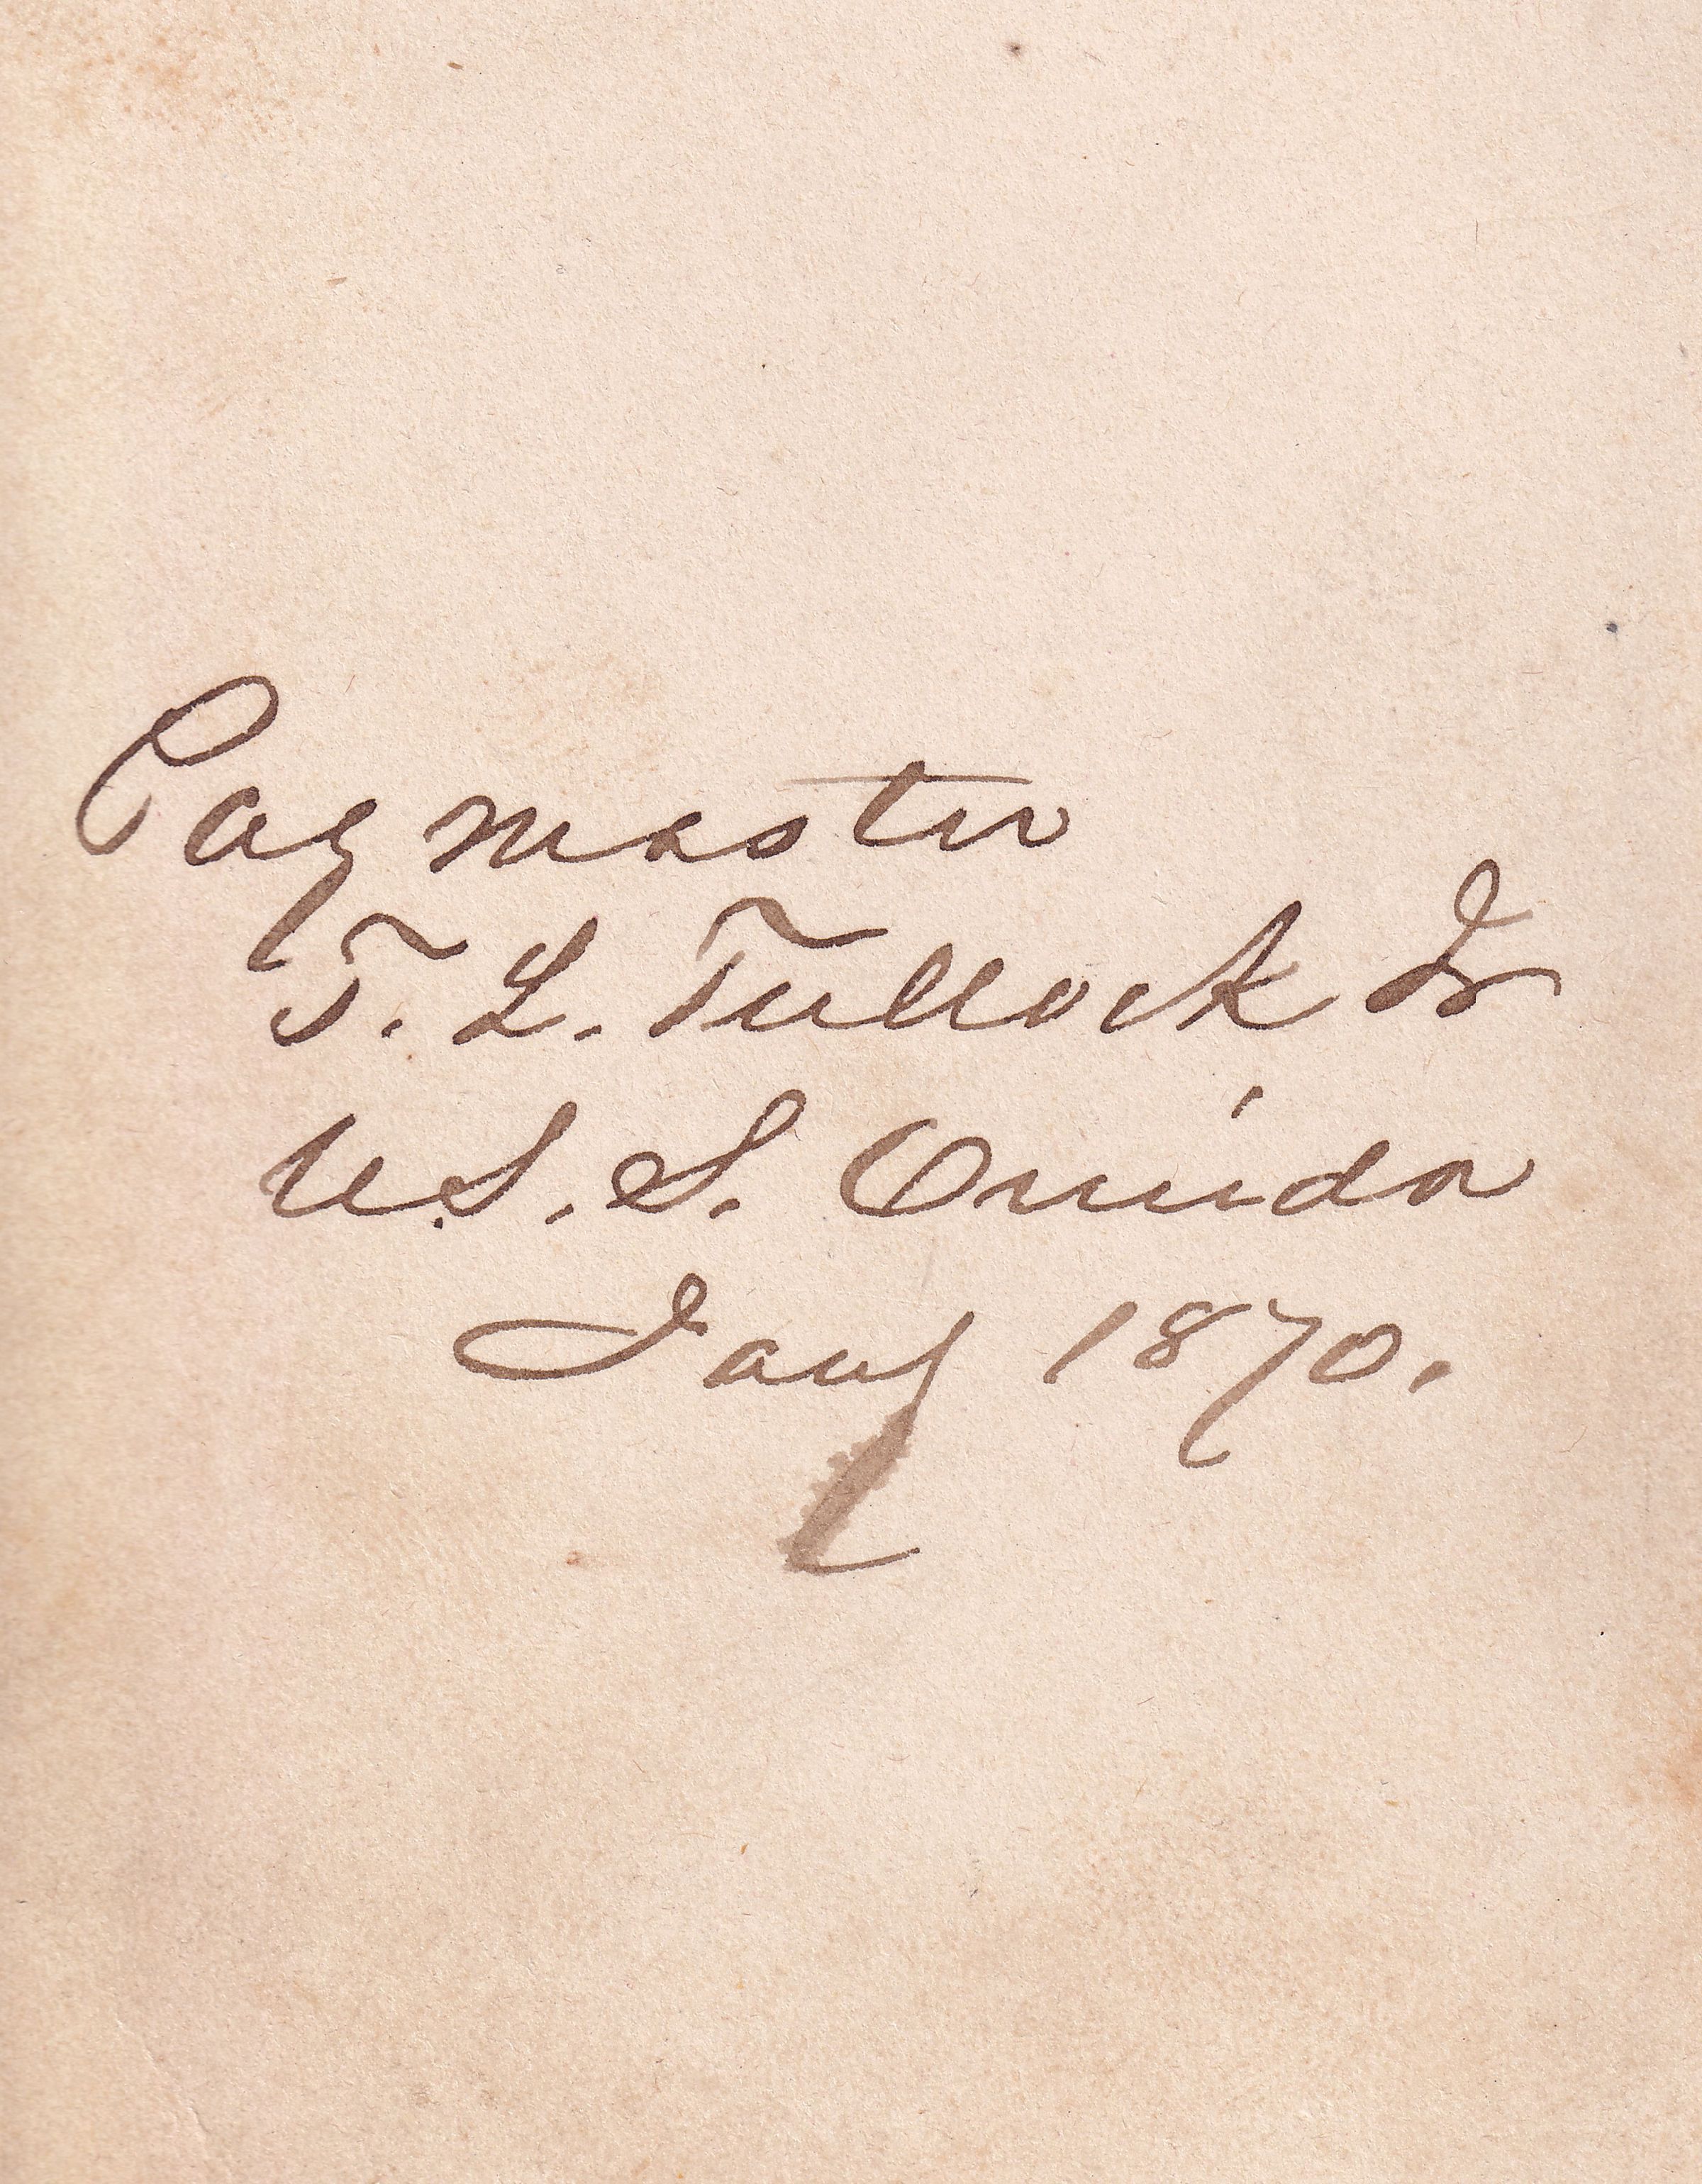 Paymaster
T. L. Tullock Jr
U.S.S. Oneida
Jany 1870.